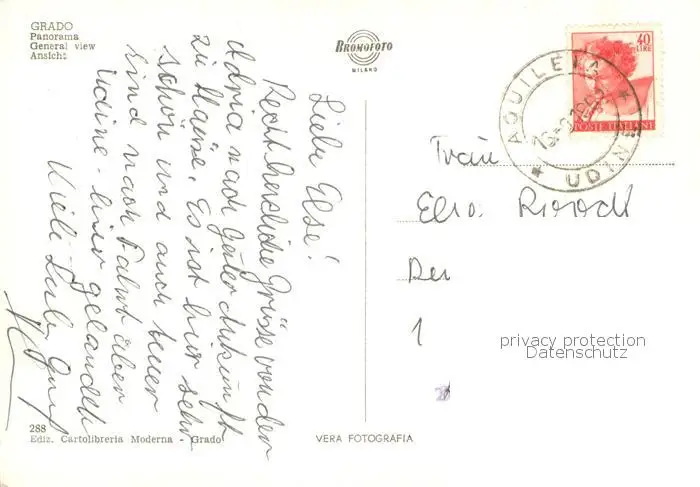 GRADO
Panorama
General view
Ansicht
BROMOFOTO
MILANO
40
LIRE
POSTE ITALIANE
AQUILEIA
UDINE
Liebe Else!
Recht herzliche Grüsse von der
Adria nach guter Ankunft
zu Hause. Es ist hier sehr
schön und auch teuer
sind nach Fahrt über
Udine - hier gelandet
Viele Liebe
Frau
Else
1
privacy protection
Datenschutz
288
Ediz. Cartolibreria Moderna - Grado
VERA FOTOGRAFIA